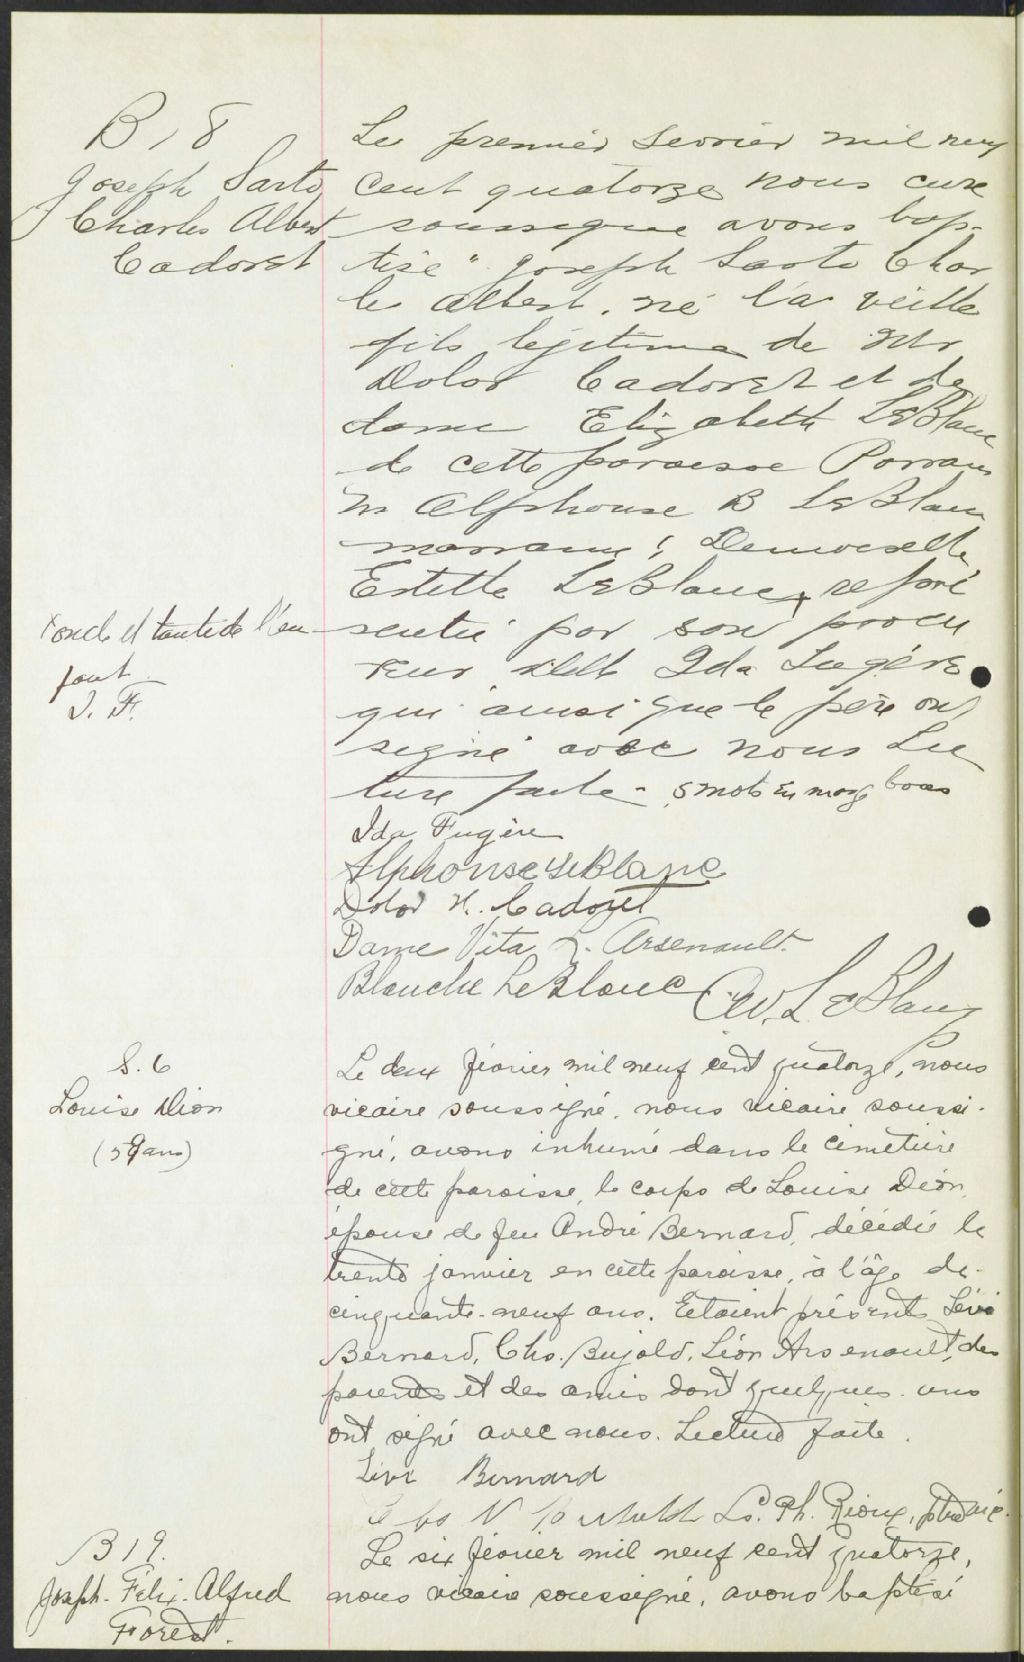 B 18
Joseph Sarto
Charles Albert
Cadoret
Le premier fevrier mil neuf
cent quatorze nous curé
soussigné avons bap-
tisé Joseph Sarto Char
le Albert, né la veille
fils légitime de Mr
Dolor Cadoret et de
dame Elizabeth LeBlanc
de cette paroisse Parrain
M Alphonse B LeBlanc
marraine; Demoiselle
Estelle LeBlanc x repré
sentée par son procu
reur Mlle Ida Fugère
qui ainsi que le père ont
signé avec nous Lec
ture faite - 5 mots en marge bons
x oncle et tante de l'en
fant
I. F.
Ida Fugère
Alphonse LeBlanc
Dolor H. Cadoret
Dame Vita L. Arsenault
Blanche LeBlanc
S. 6
Louise Dion
(59 ans)
Le deux février mil neuf cent quatorze, nous
vicaire soussigné, nous vicaire soussi-
gné, avons inhumé dans le cimetière
de cette paroisse, le corps de Louise Dion,
épouse de feu André Bernard, décédée le
trente janvier en cette paroisse, à l'âge de
cinquante-neuf ans. Etaient présents Lévi
Bernard, Chs. Bujold, Léon Arsenault, des
parents et des amis dont quelques-uns
ont signé avec nous. Lecture faite.
Livi Bernard
Ls. Ph. Rioux, ptre vic.
B 19.
Joseph-Félix-Alfred
Forest.
Le six février mil neuf cent quatorze,
nous vicaire soussigné, avons baptisé